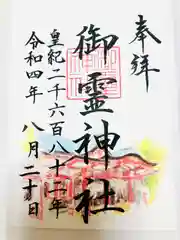 奉拝
御霊神社
皇紀二千六百八十二年
令和四年 八月二十日